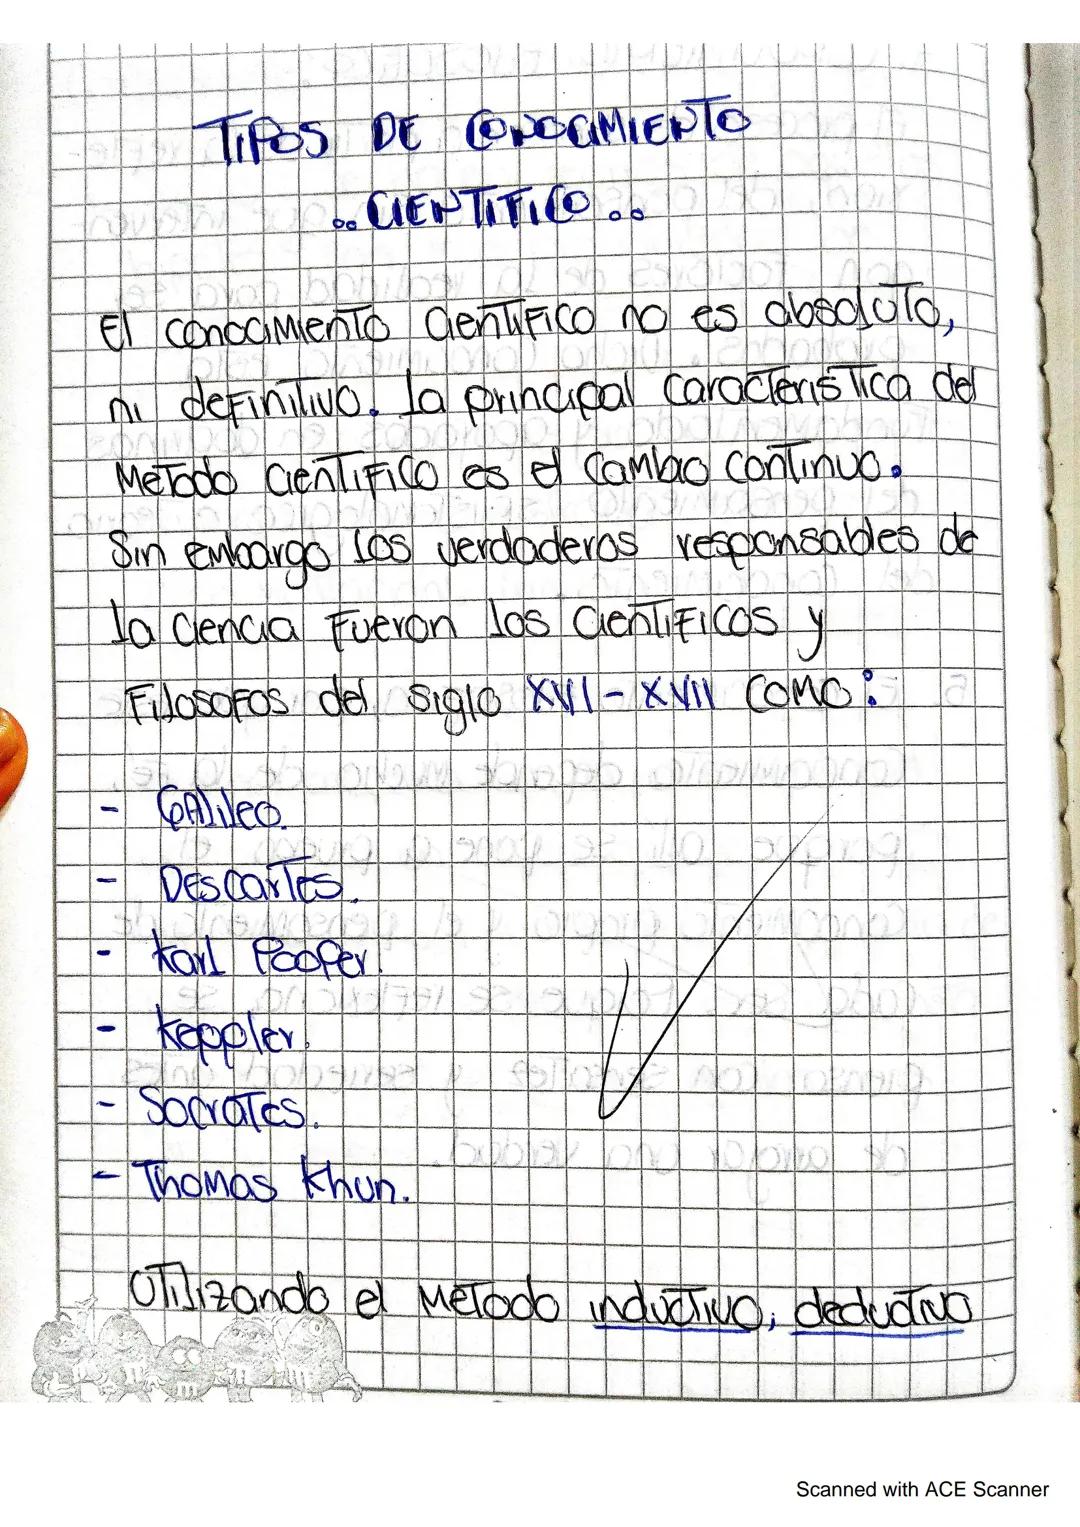 TIPOS DE CONOCIMIENTO
.. CIENTIFICO ..
El conocimiento cientifico no es absoluto,
ni definitivo. la principal caracteristica del
Metodo cientifico es el cambio continuo.
Sin embargo los verdaderos responsables de
la ciencia fueron los cientificos y
Filosofos del siglo XVI - XVII como:
- Galileo.
- Descartes.
- Karl Pooper.
- Keppler.
- Socrates.
- Thomas Khun.
Utilizando el Metodo inductivo, deductivo
Scanned with ACE Scanner